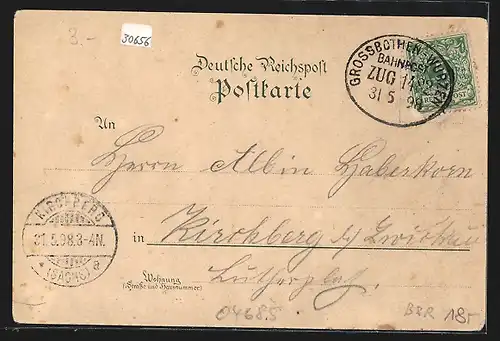 3.-
30656
Deutsche Reichspost
Postkarte
GROSSBOTHEN-WURZEN
BAHNPOST
ZUG
31 5 98
An
Herrn Albin Haberkorn
KIRCHBERG
31.5.98.3-4N.
* (SACHS) a
in Kirchberg b/ Zwickau
Lutherplatz.
Wohnung
(Straße und Hausnummer)
04685
BZR 18,-